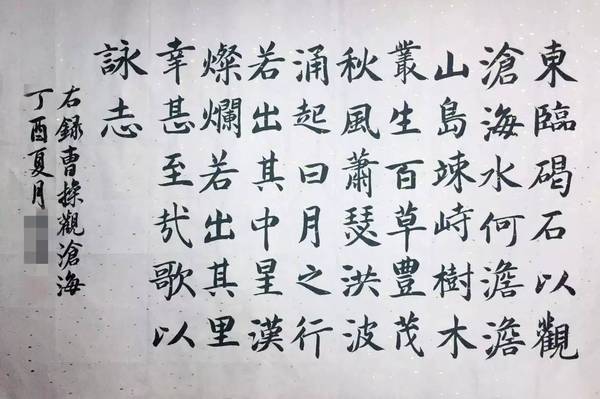 東臨碣石以觀
滄海水何澹澹
山島竦峙樹木
叢生百草豐茂
秋風蕭瑟洪波
涌起日月之行
若出其中星漢
燦爛若出其里
幸甚至哉歌以
詠志
右錄曹操觀滄海
丁酉夏月